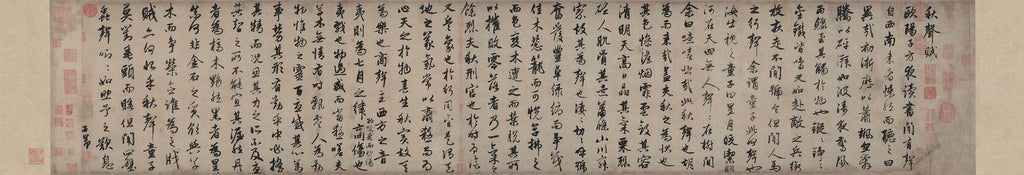 秋聲賦
歐陽子方夜讀書聞有聲
自西南來者悚然而聽之曰
異哉初淅瀝以蕭颯忽奔
騰以砰湃如波濤夜驚風
雨驟至其觸於物也鏦鏦錚錚
金鐵皆鳴又如赴敵之兵銜
枚疾走不聞號令但聞人馬
之行聲余謂童子此何聲也
汝出視之童子曰星月皎潔明
河在天四無人聲聲在樹間
余曰噫嘻悲哉此秋聲也胡
為而來哉蓋夫秋之為狀也
其色慘淡煙霏雲斂其容
清明天高日晶其氣栗冽
砭人肌骨其意蕭條山川寂
寥故其為聲也淒淒切切呼號
奮發豐草綠縟而爭茂
佳木蔥蘢而可悅草拂之
而色變木遭之而葉脫其所
以摧敗零落者乃一氣之
餘烈夫秋刑官也於時為陰
又兵象也於行用金是謂天
地之義氣常以肅殺而為
心天之於物春生秋實故其在
樂也商聲主西方之音
夷則為七月之律商傷也物既老而悲傷
夷戮也物過盛而當殺嗟夫
草木無情有時飄零人為動
物惟物之靈百憂感其心萬
事勞其形有動於中必搖
其精而況思其力之所不及憂
其智之所不能宜其渥然丹
者為槁木黟然黑者為星
星奈何非金石之質欲與草
木而爭榮念誰為之戕
賊亦何恨乎秋聲童子
莫對垂頭而睡但聞四壁
蟲聲唧唧如助予之歎息
子昂